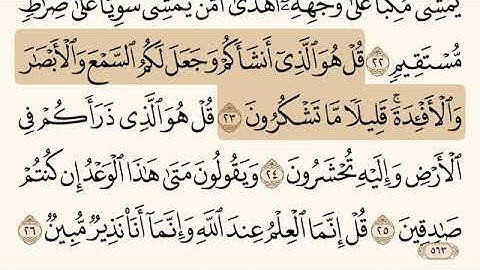 يَمْشِى مُكِبًّا عَلَىٰ وَجْهِهِۦٓ أَهْدَىٰٓ أَمَّن يَمْشِى سَوِيًّا عَلَىٰ صِرَٰطٍ
مُّسْتَقِيمٍ ٢٢ قُلْ هُوَ ٱلَّذِىٓ أَنشَأَكُمْ وَجَعَلَ لَكُمُ ٱلسَّمْعَ وَٱلْأَبْصَٰرَ
وَٱلْأَفْـِٔدَةَ ۖ قَلِيلًا مَّا تَشْكُرُونَ ٢٣ قُلْ هُوَ ٱلَّذِى ذَرَأَكُمْ فِى
ٱلْأَرْضِ وَإِلَيْهِ تُحْشَرُونَ ٢٤ وَيَقُولُونَ مَتَىٰ هَٰذَا ٱلْوَعْدُ إِن كُنتُمْ
صَٰدِقِينَ ٢٥ قُلْ إِنَّمَا ٱلْعِلْمُ عِندَ ٱللَّهِ وَإِنَّمَآ أَنَا۠ نَذِيرٌ مُّبِينٌ ٢٦
٥٦٣